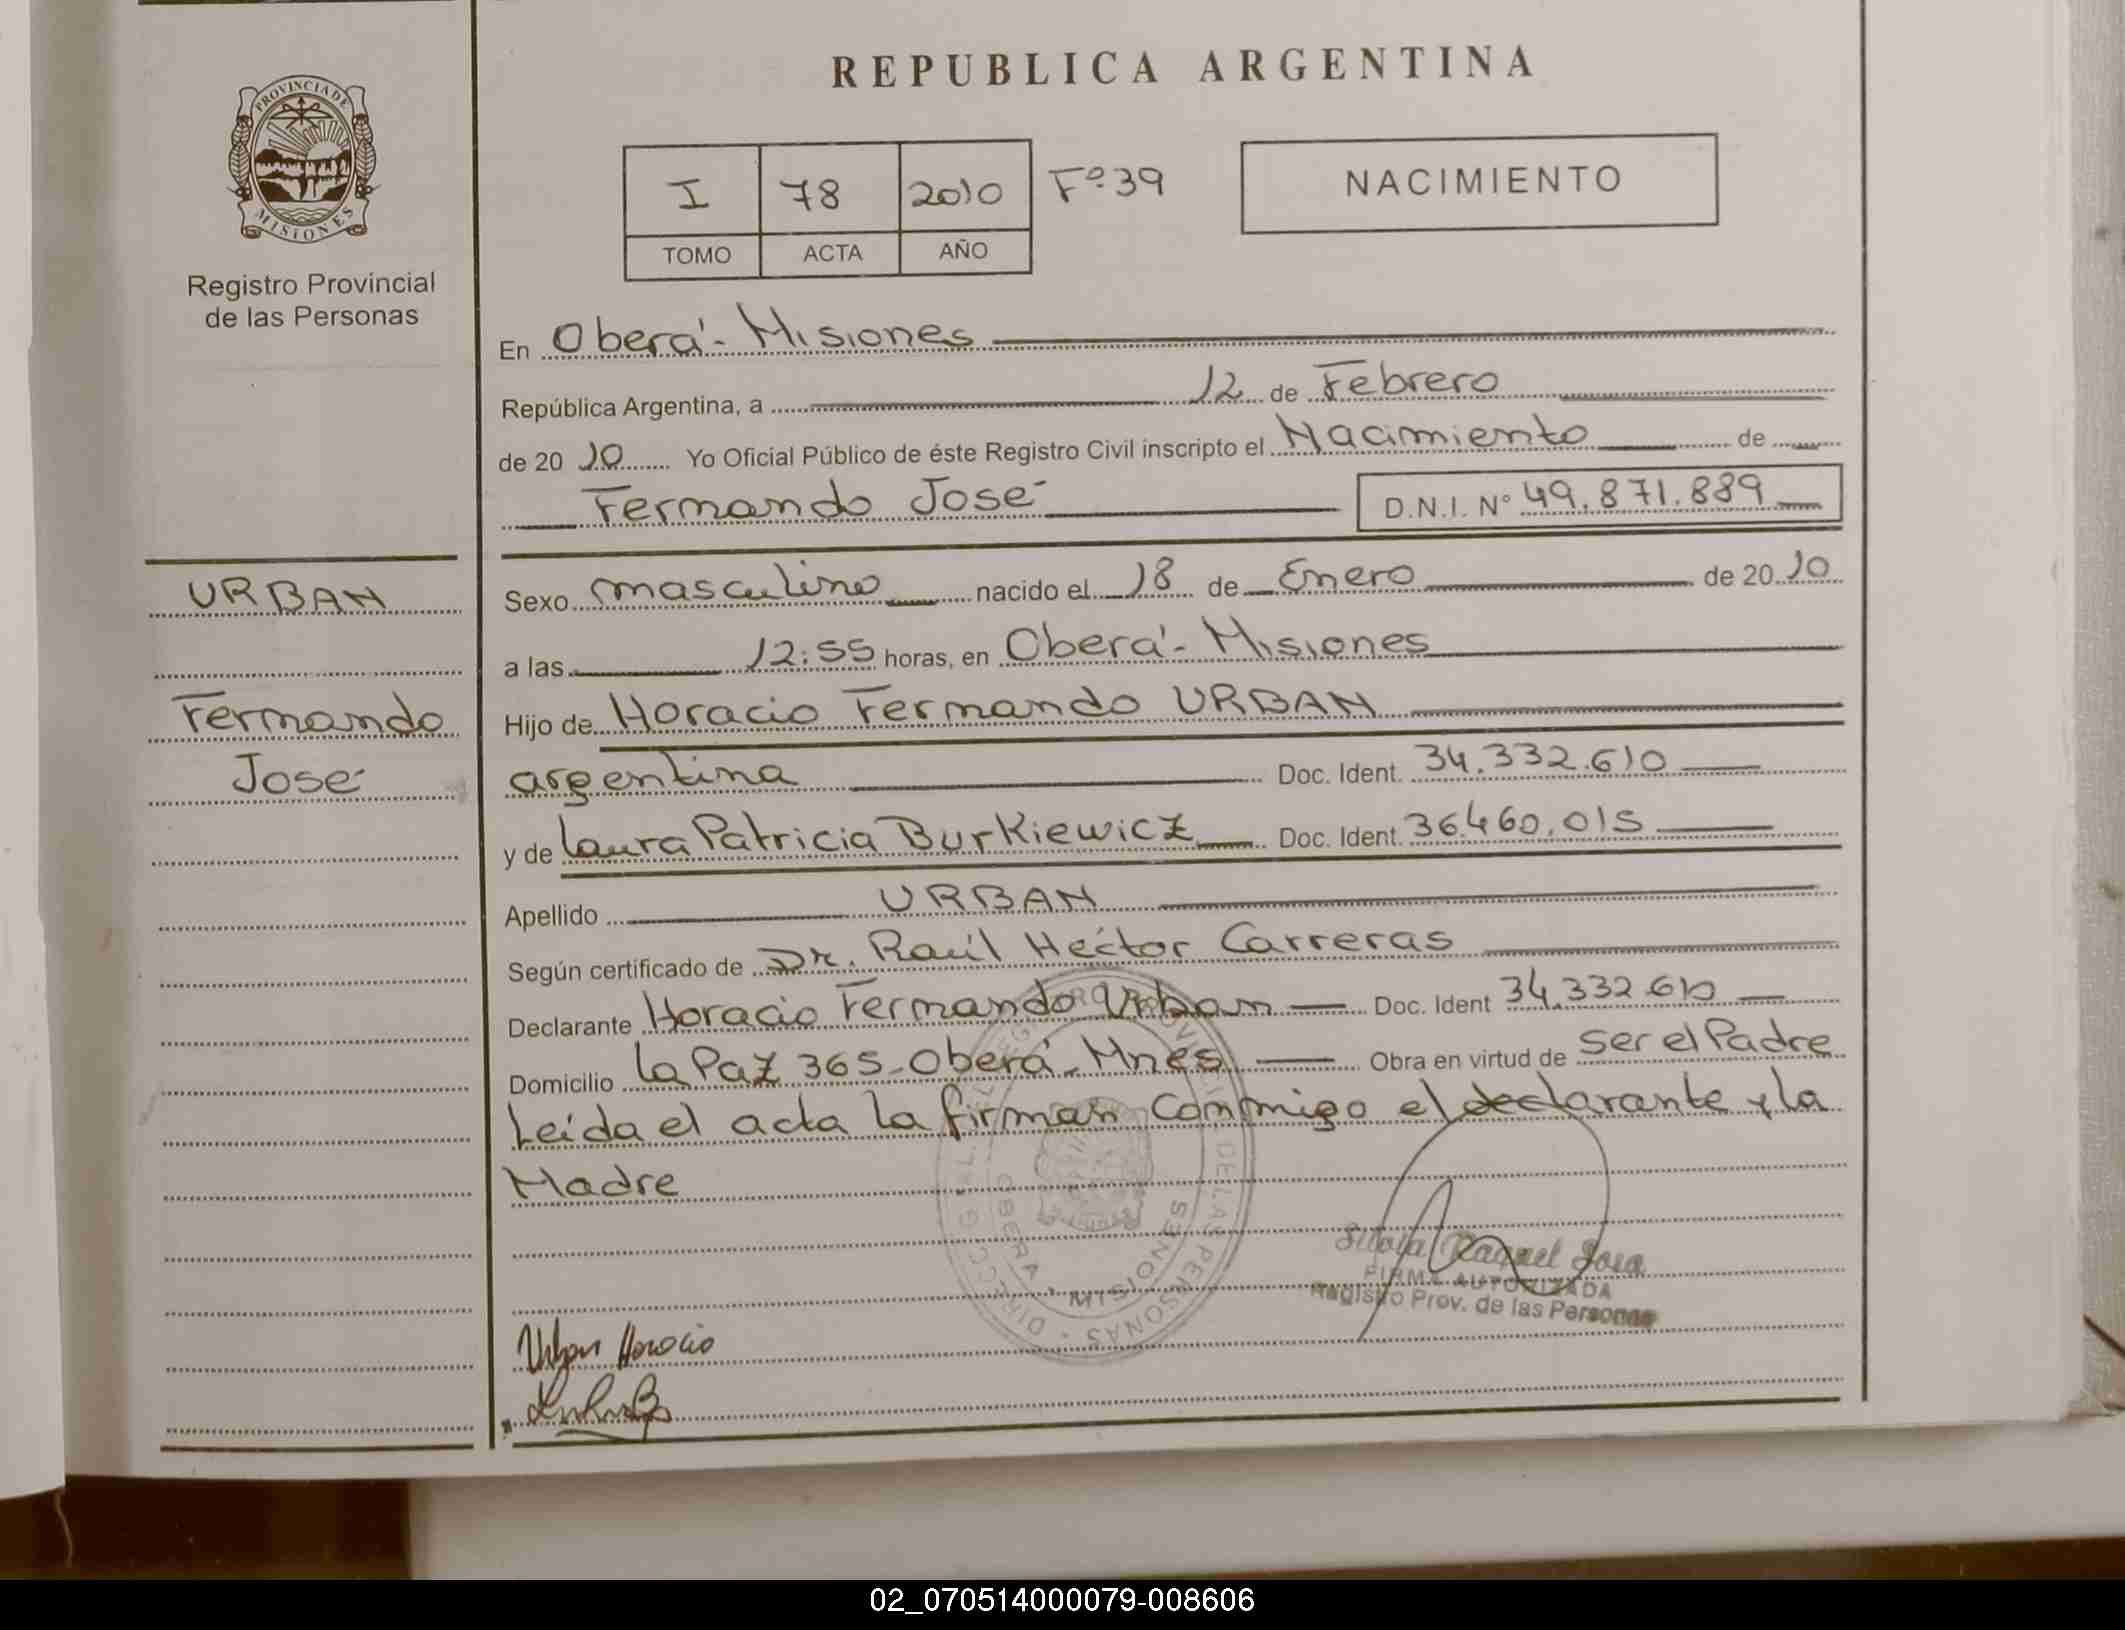 REPUBLICA ARGENTINA
PROVINCIA DE
MISIONES
Registro Provincial
de las Personas
I 78 2010 Fº39
TOMO ACTA AÑO
NACIMIENTO
En Oberá - Misiones
República Argentina, a 12 de Febrero
de 20 10 Yo Oficial Público de éste Registro Civil inscripto el Nacimiento de
Fernando José D.N.I. Nº 49.871.889
URBAN
Fernando
José
Sexo masculino nacido el 18 de Enero de 20 10
a las 12:55 horas, en Oberá - Misiones
Hijo de Horacio Fernando URBAN
argentina Doc. Ident. 34.332.610
y de Laura Patricia Burkiewicz Doc. Ident. 36.460.015
Apellido URBAN
Según certificado de Dr. Raúl Héctor Carreras
Declarante Horacio Fernando Urban Doc. Ident 34.332.610
Domicilio La Paz 365 - Oberá - Mnes Obra en virtud de Ser el Padre
Leída el acta la firman conmigo el declarante y la
Madre
OBERA MISIONES
Silvia Raquel Sosa
FIRMA AUTORIZADA
Registro Prov. de las Personas
Urban Horacio
02_070514000079-008606